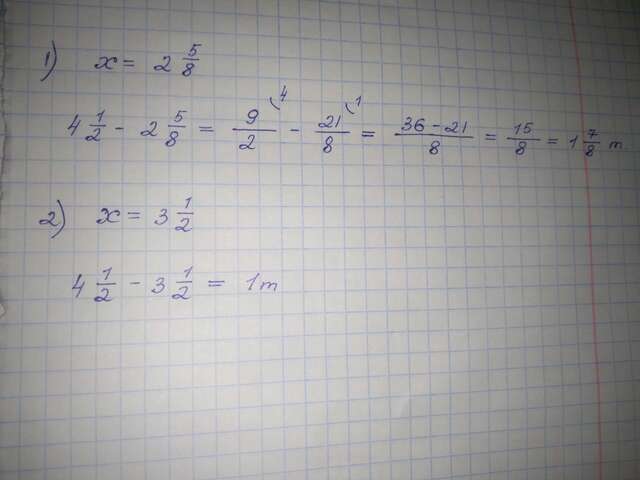 1) x = 2 5/8
4 1/2 - 2 5/8 = 9/2 (4 - 21/8 (1 = 36-21/8 = 15/8 = 1 7/8 m
2) x = 3 1/2
4 1/2 - 3 1/2 = 1m